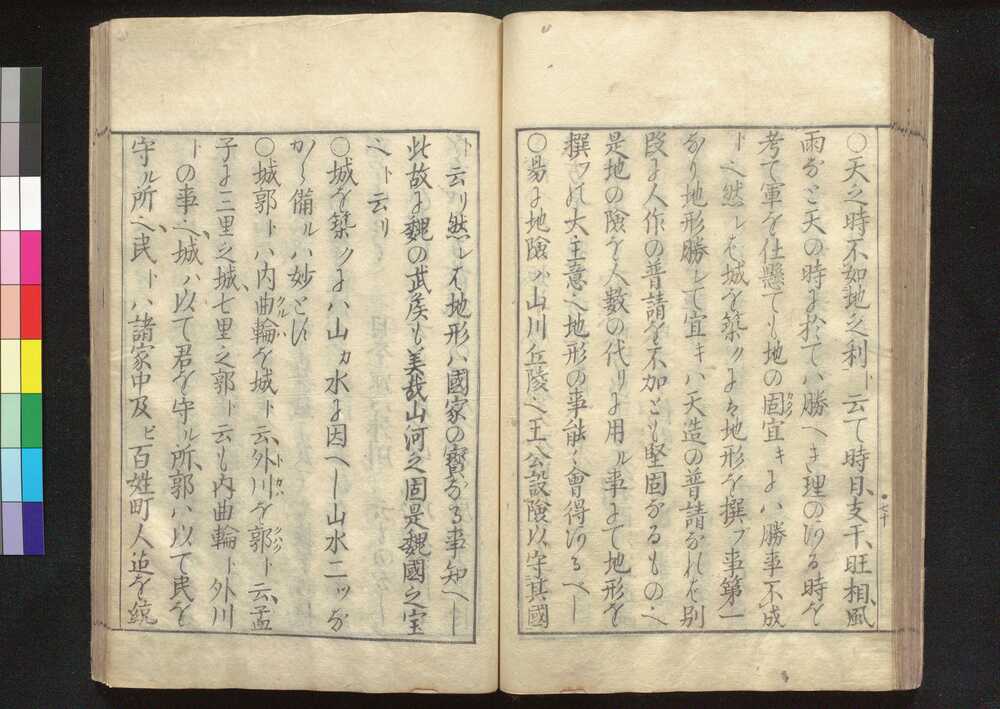 ○天之時不如地之利ト云て時日、支干、旺相、風
雨なと天の時に於てハ勝へき理のある時を
考て軍を仕懸ても地の固宜キにハ勝事不成
ト也然レは城を築クには地形を撰フ事第一
なり地形勝レて宜キハ天造の普請なれは別
段に人作の普請を不加とも堅固なるもの也
是地の険を人数の代リに用ル事にて地形を
撰フカ大主意也地形の事能ク會得あるへし
○易に地險ハ山川丘陵也王公設險以守其國
ト云リ然レは地形ハ國家の寳なる事知へし
此故に魏の武侯も美哉山河之固是魏國之宝
也ト云リ
○城を築クにハ山カ水に因へし山水二ツな
から備ルハ妙とす
○城郭トハ内曲輪を城ト云、外川を郭ト云、孟
子に三里之城、七里之郭ト云も内曲輪ト外川
トの事也、城ハ以て君を守ル所、郭ハ以て民を
守ル所也、民トハ諸家中及ヒ百姓町人迄を統
七十